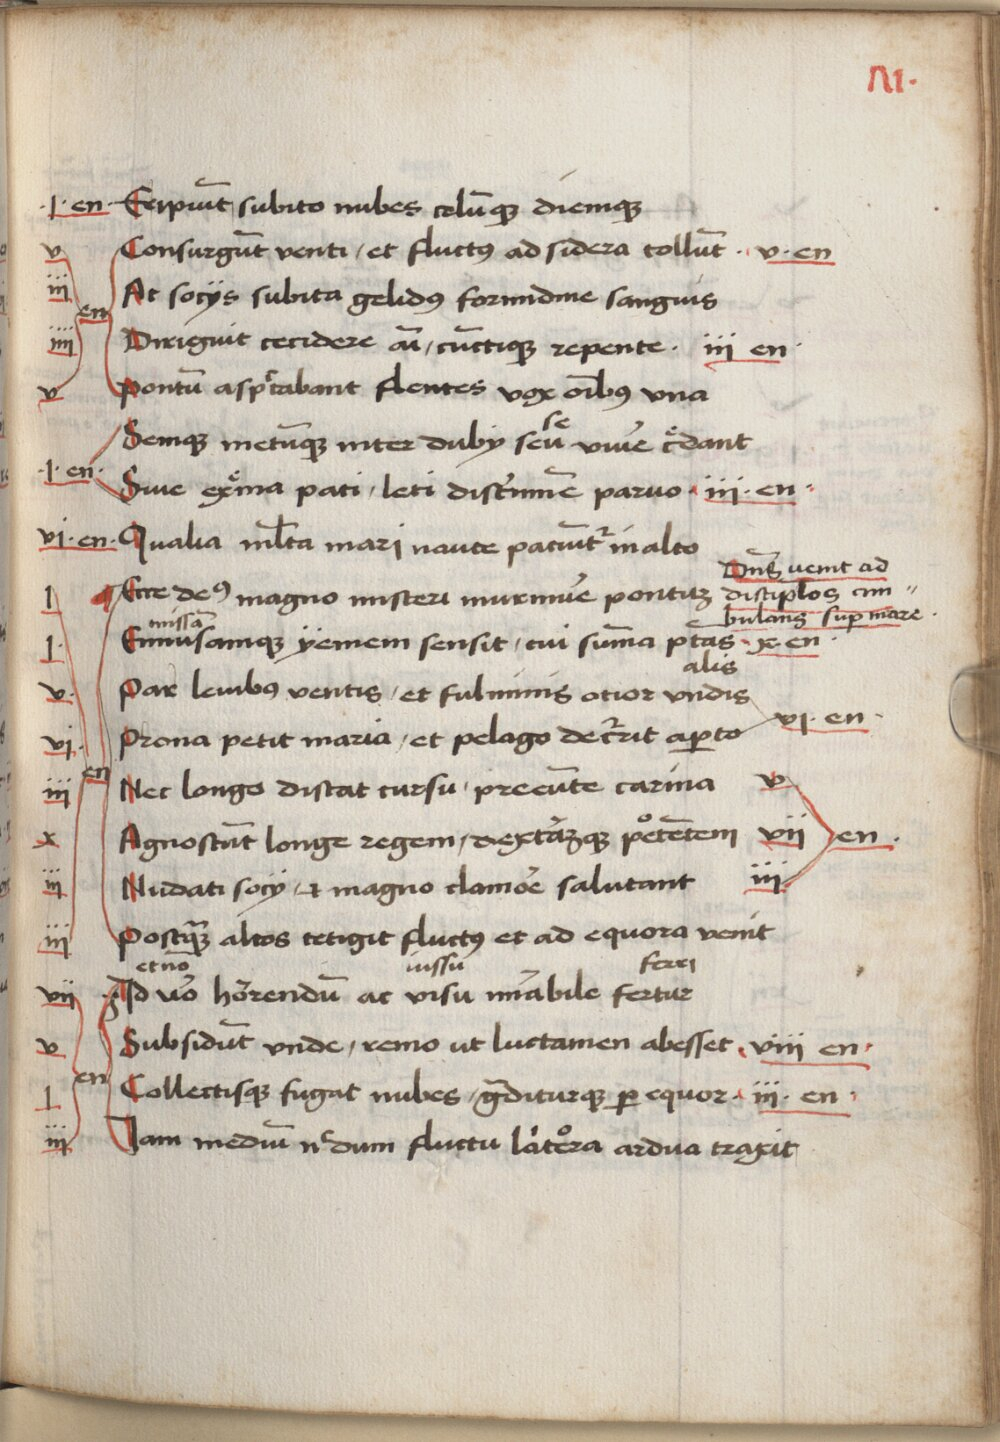 VI·
·I· en· Eripiūt subito nubes celūq₃ diemq₃
v Consurgūt venti / et fluctꝰ ad sidera tollūt · v · en
iij At socijs subita gelidꝰ formidine sanguis
en
iiij Dirieguit cecidere aī / cūctiq₃ repente · iij en ·
v Pontū aspctabant flentes vox oībꝰ vna
se
Semq₃ metūq₃ inter dubij seu viuē cͤdant
·I· en· Siue exͤma pati / leti discͥminē paruo · iij · en ·
vi· en· Qualia ml̄ta mari naute patiūtᷣ in alto
Dn̄s uenit ad
I Ecce deꝰ magno misceri murmuͤ pontū discipl̄os am-
bulans suꝑ mare ·
missā
I· Emusamq₃ ÿemem sensit / cui sum̄a ptas · x · en ·
alis
v· Par leuibꝰ ventis / et fulminis ocior vndis
vi· Prona petit maria / et pelago decͬrit aꝑto vi · en ·
en
iij Nec longo distat cursu / preeūte carina v
x Agnoscūt longe regem / dextᷓq₃ pͦtētem vij en ·
iij Nudati socij / ⁊ magno clamoͤ salutant iij
iij Postq̄₃ altos tetigit fluctꝰ et ad equora venit
et nō iussu ferri
vij Id vͦo hoͬrendū ac visu miͬabile fertur
v Subsidūt vnde / remo ut luctamen abesset · viij en ·
en
I Collectisq₃ fugat nubes / gᷓditurq₃ ꝑ equor · iij · en ·
iij Iam mediū nͨdum fluctu latera ardua traxit